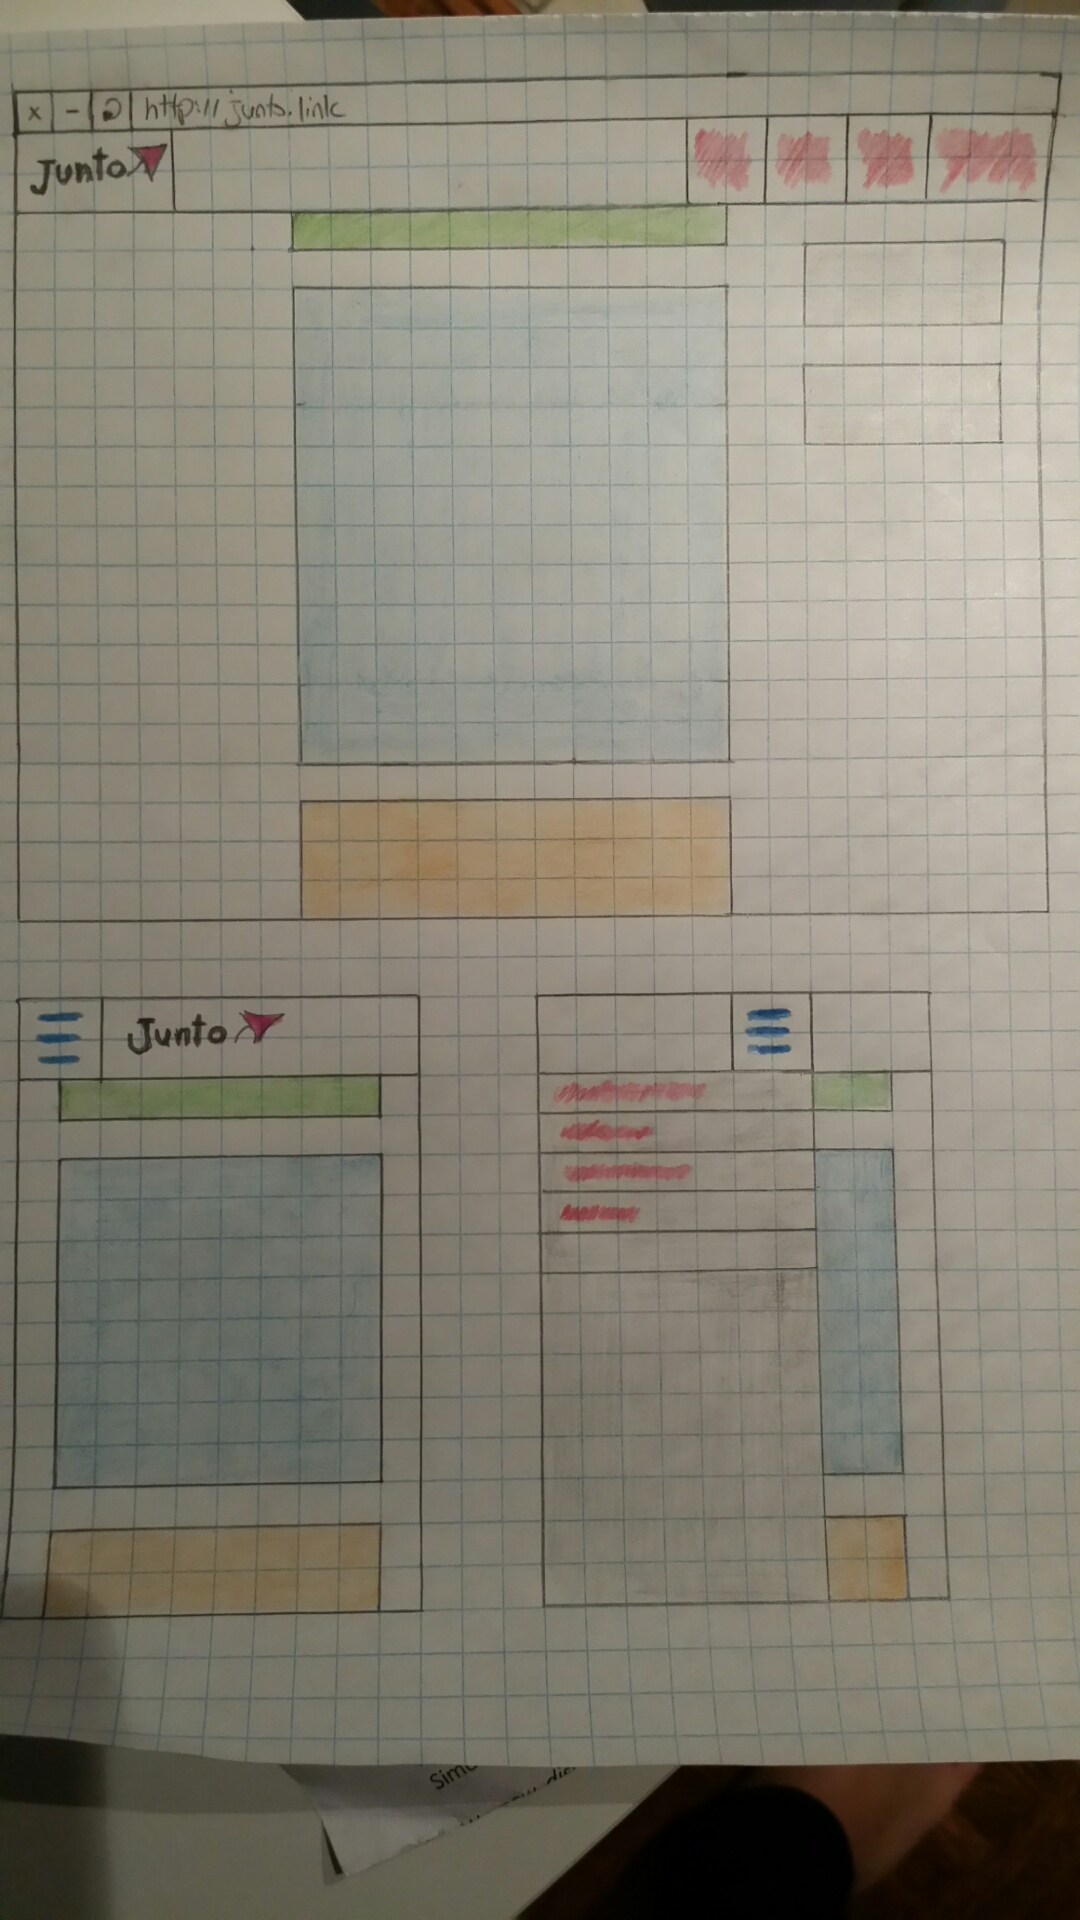 x - http://junto.link
Junto
Junto
Sim